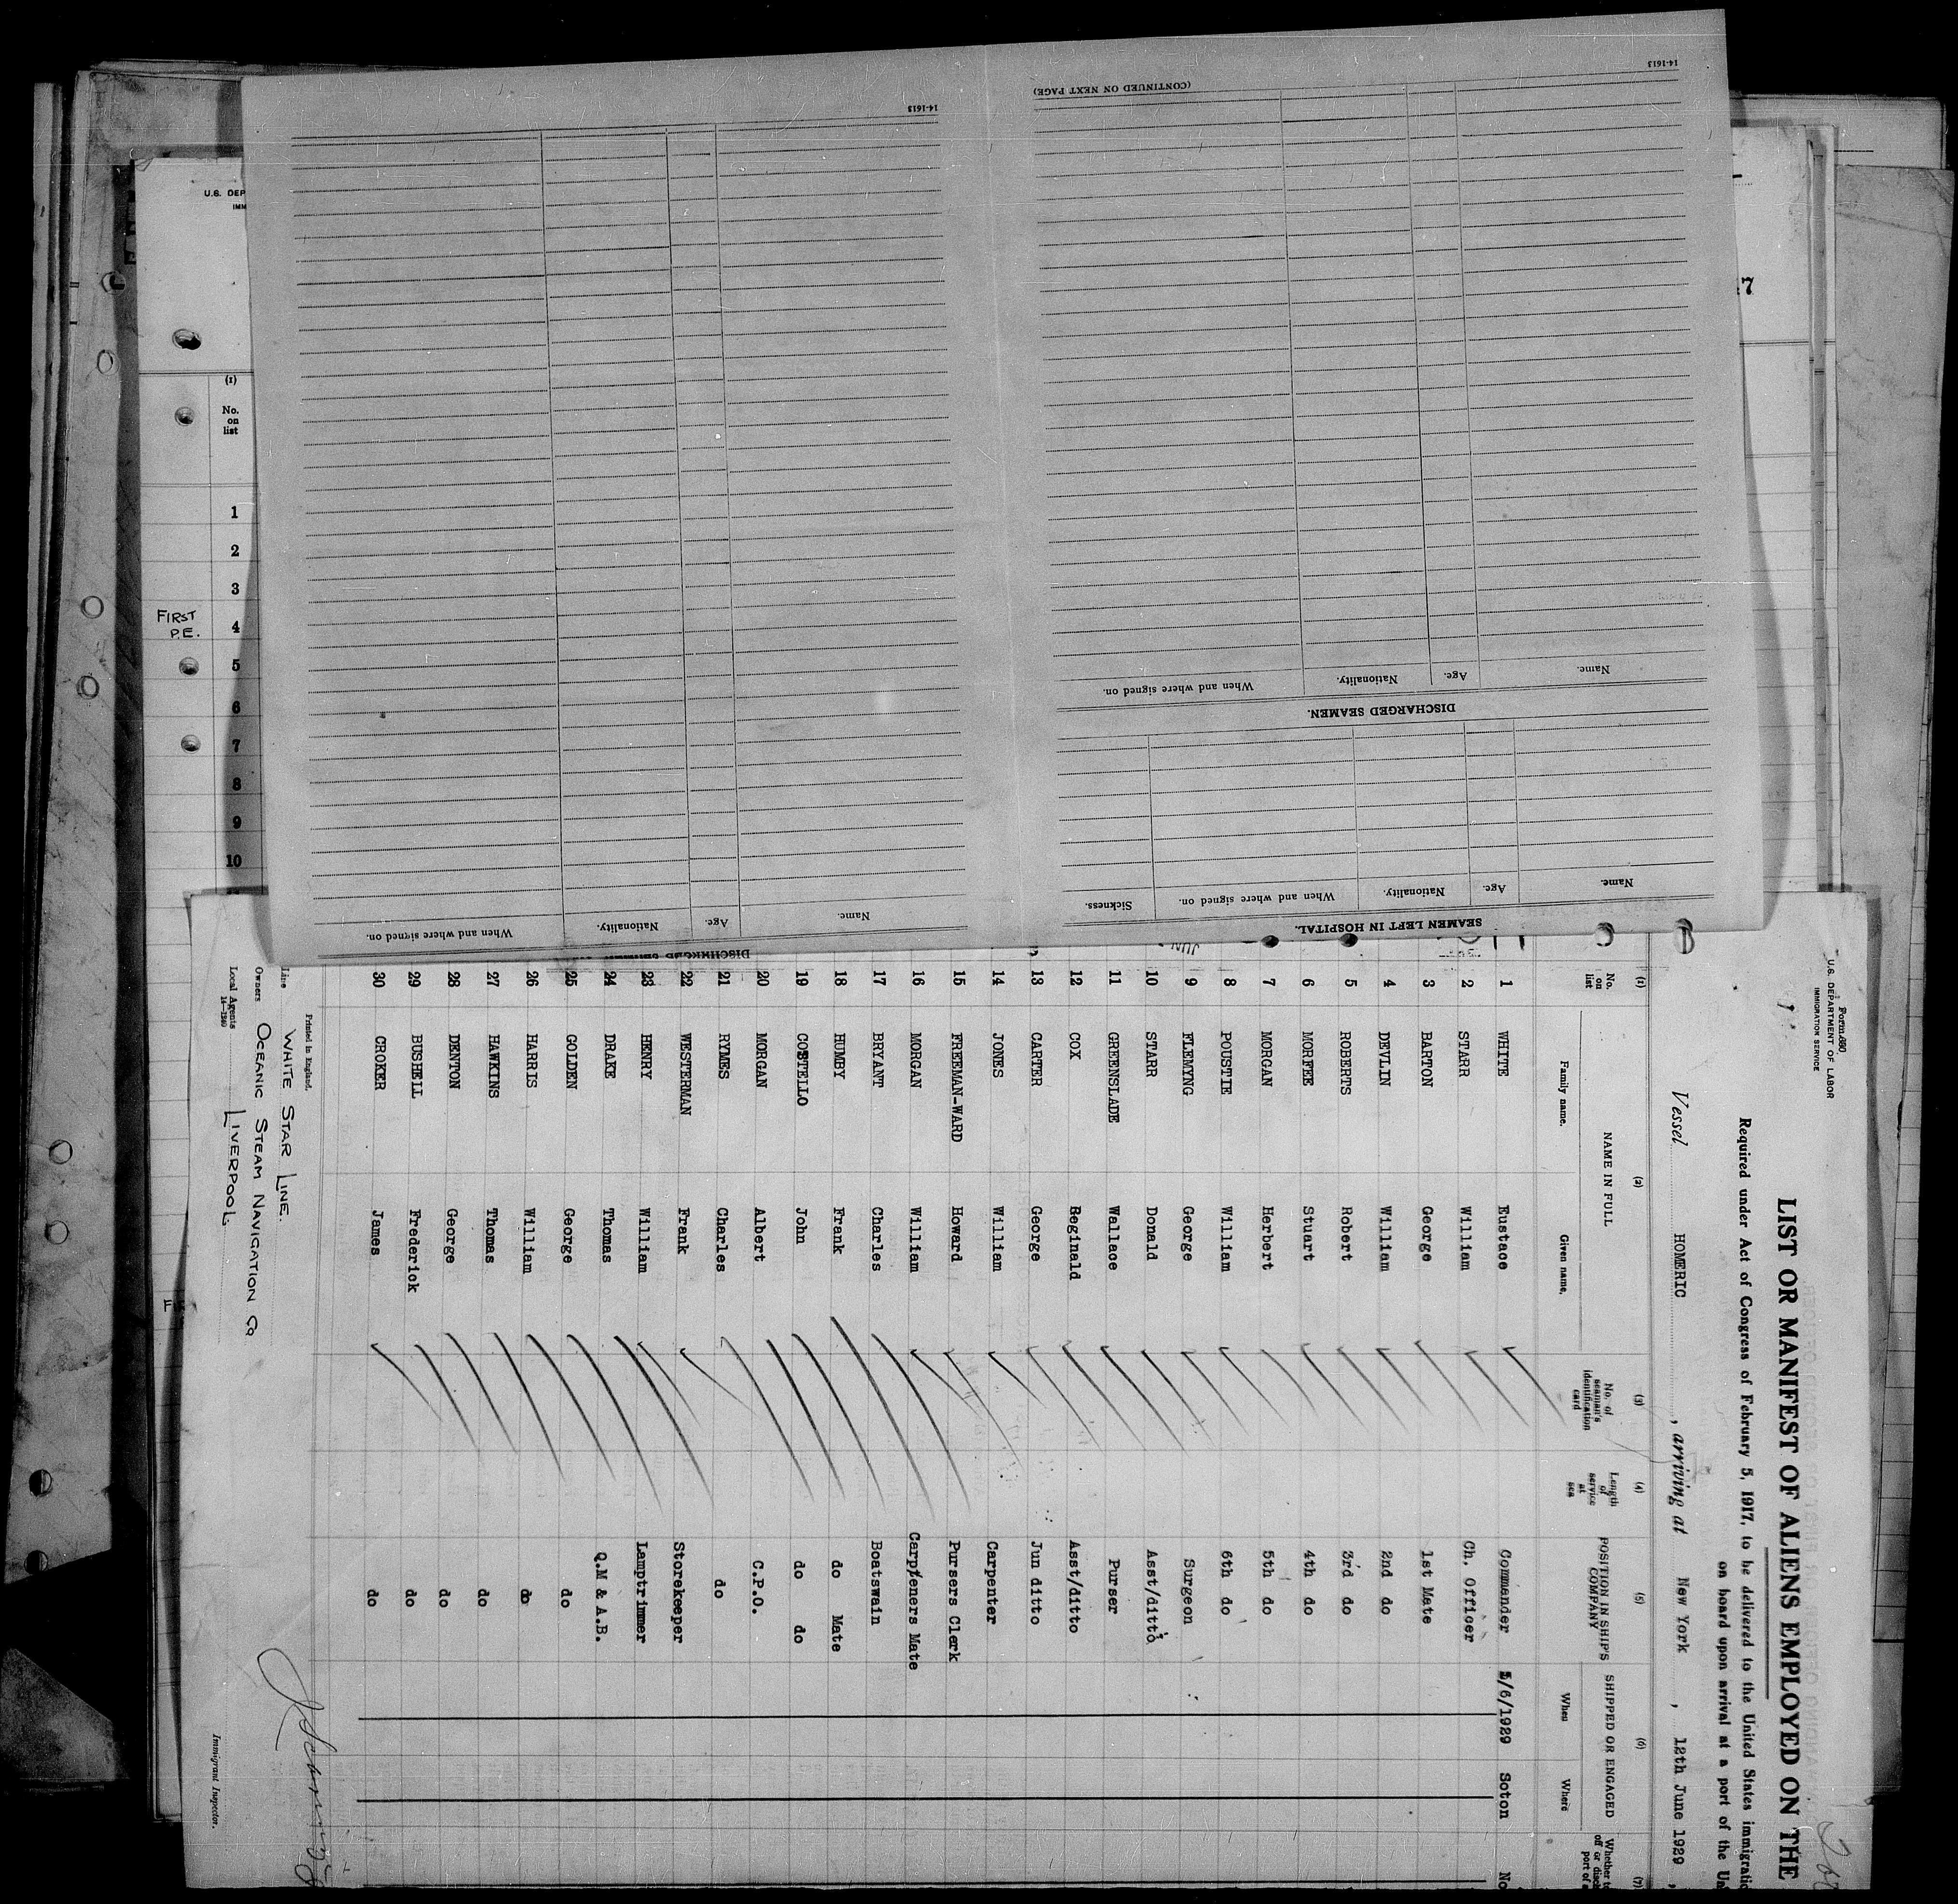 14-1613
(CONTINUED ON NEXT PAGE)
14-1613
Name.
Age.
Nationality.
When and where signed on.
DISCHARGED SEAMEN.
Name.
Age.
Nationality.
When and where signed on.
Sickness.
SEAMEN LEFT IN HOSPITAL.
Name.
Age.
Nationality.
When and where signed on.
U.S. DEP
IMM
(1)
No. on list
1
2
3
FIRST P.E.
4
5
6
7
8
9
10
17
Form 680
U.S. DEPARTMENT OF LABOR
IMMIGRATION SERVICE
LIST OR MANIFEST OF ALIENS EMPLOYED ON THE
Required under Act of Congress of February 5, 1917, to be delivered to the United States immigratio
on board upon arrival at a port of the Un
Vessel HOMERIC, arriving at New York, 12th June 1929,
(1) (2) (3) (4) (5) (6) (7)
No. on list
NAME IN FULL
Family name. Given name.
No. of seaman's identification card
Length of service at sea
POSITION IN SHIP'S COMPANY
SHIPPED OR ENGAGED
When Where
1 WHITE Eustace Commander 5/6/1929 Soton No
2 STARR William Ch. Officer
3 BARTON George 1st Mate
4 DEVLIN William 2nd do
5 ROBERTS Robert 3rd do
6 MORFEE Stuart 4th do
7 MORGAN Herbert 5th do
8 POUSTIE William 6th do
9 FLEMYNG George Surgeon
10 STARR Donald Asst/ditto
11 GREENSLADE Wallace Purser
12 COX Reginald Asst/ditto
13 CARTER George Jun ditto
14 JONES William Carpenter
15 FREEMAN-WARD Howard Pursers Clerk
16 MORGAN William Carpeners Mate
17 BRYANT Charles Boatswain
18 HUMBY Frank do Mate
19 COSTELLO John do do
20 MORGAN Albert C.P.O.
21 RYMES Charles do
22 WESTERMAN Frank Storekeeper
23 HENRY William Lamptrimmer
24 DRAKE Thomas Q.M & A.B.
25 GOLDEN George do
26 HARRIS William do
27 HAWKINS Thomas do
28 DENTON George do
29 BUSHELL Frederick do
30 CROKER James do
Printed in England.
Line WHITE STAR LINE.
Owners OCEANIC STEAM NAVIGATION Co
Local Agents LIVERPOOL
14-1240
Immigrant Inspector.